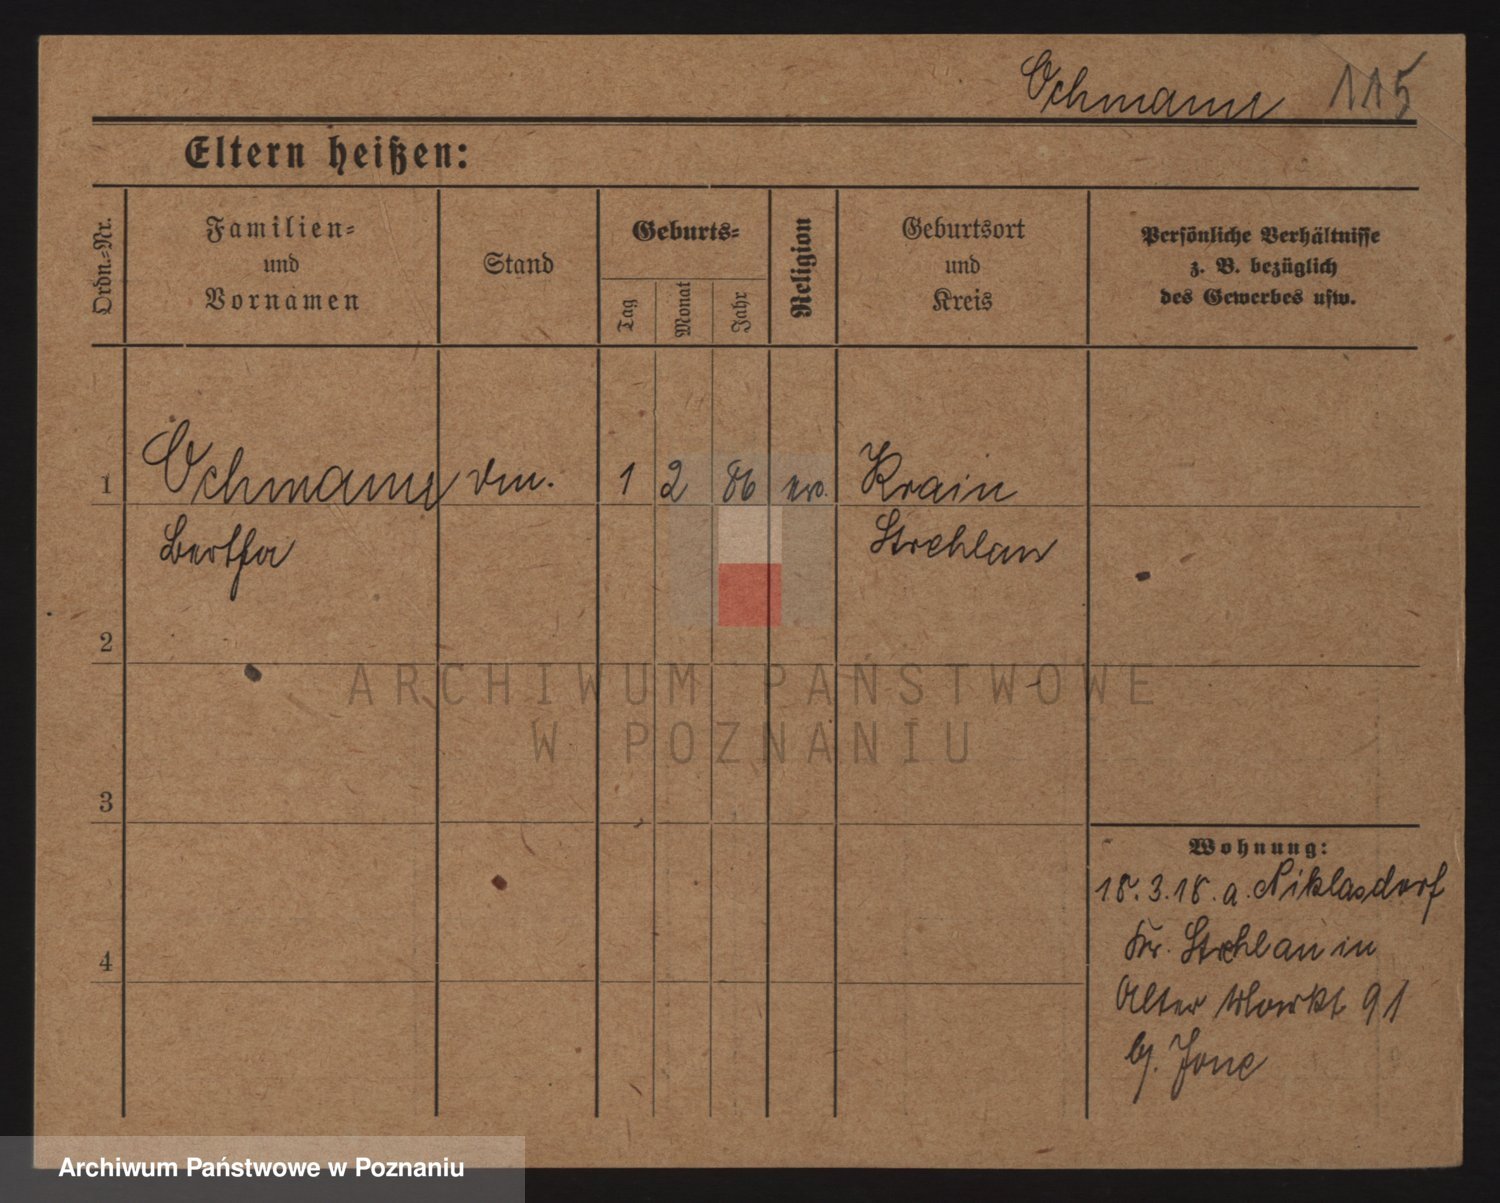 Ochmann 115
Eltern heißen:
Ordn.-Nr.
Familien-
und
Vornamen
Stand
Geburts-
Tag
Monat
Jahr
Religion
Geburtsort
und
Kreis
Persönliche Verhältnisse
z. B. bezüglich
des Gewerbes usw.
1 Ochmann 1 2 86 ev. Krain
Bertha Strehlau
2
3
4
Wohnung:
18.3.18. a. Niklasdorf
Kr. Strehlau in
Alter Markt 91
b/.
ARCHIWUM PAŃSTWOWE
W POZNANIU
Archiwum Państwowe w Poznaniu